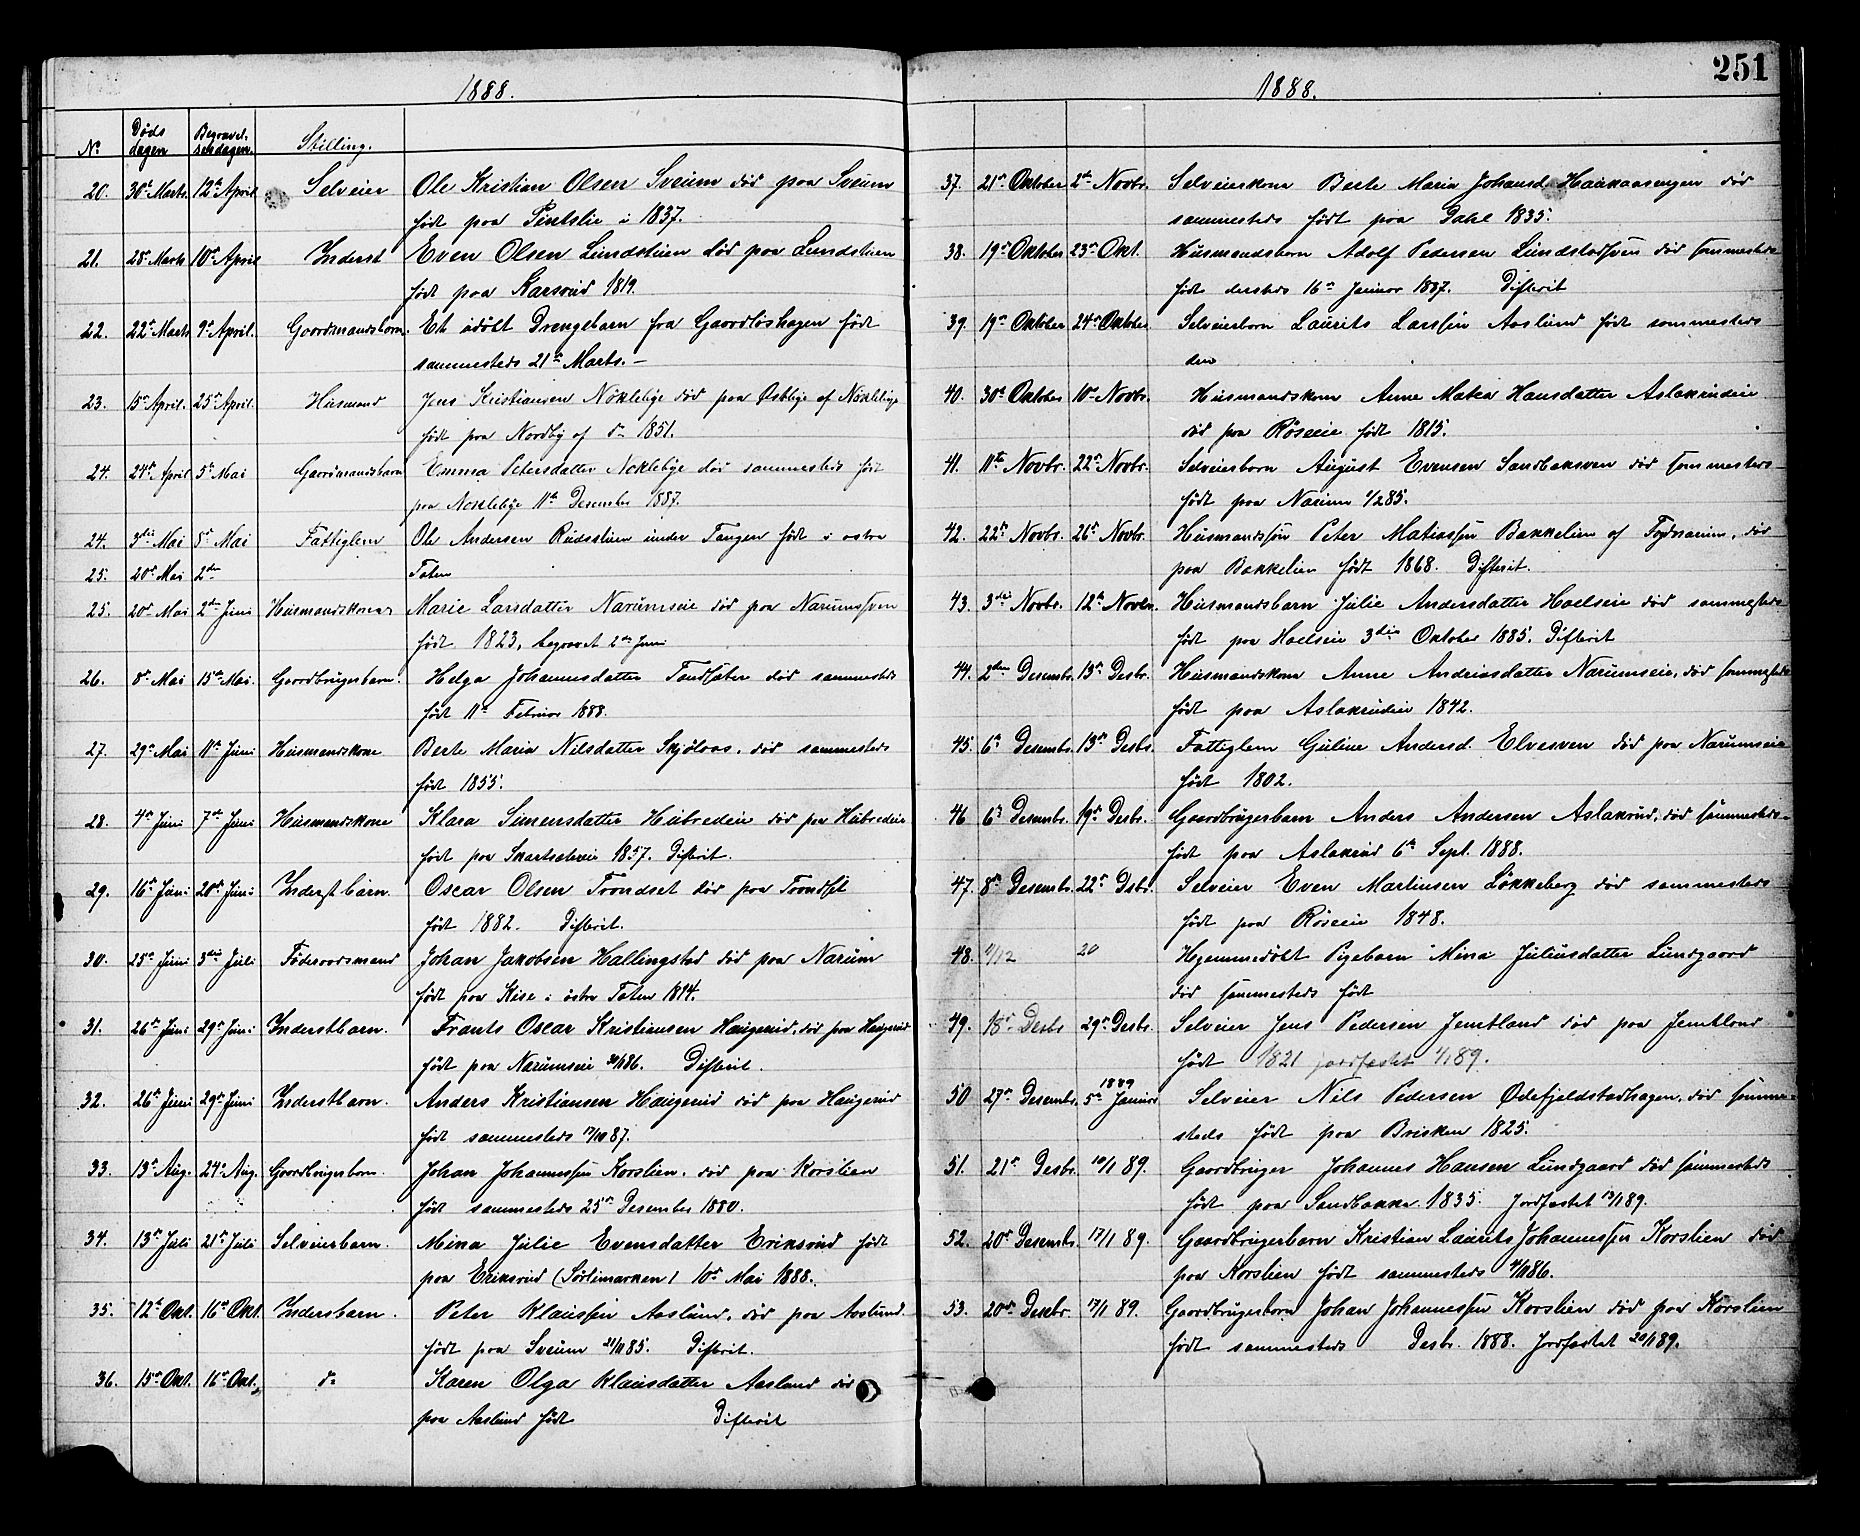 251
1888.
No Døds dagen Begravel- sesdagen. Stilling.
20. 30te Marts. 12te April Selveier Ole Kristian Olsen Sveum død paa Sveum
født paa i 1837.
21. 28de Marts 10de April Inderst Even Olsen Lundstuen død paa Lundstuen
født paa Karsrud 1819.
22. 22de Marts 9de April. Gaardmandsbarn. Et udøbt Drengebarn fra Gaardløshagen født
sammesteds 21de Marts. –
23. 15de April. 25de April. Husmand Jens Kristiansen Nøklebye død paa Østbye af Nøklebye
født paa Nordby af do 1851.
24. 24de April 5te Mai Gaardmandsbarn Emma Petersdatter Nøklebye død sammesteds født
paa Nøklebye 11te Desember 1887.
24. 3die Mai 8de Mai Fattiglem Ole Andersen Rudsstuen under Tangen født i østre
25. 20de Mai 2den Toten
25. 20de Mai 2den Juni Husmandskone Marie Larsdatter Narumseie død paa Narumseie
født 1823, begravet 2den Juni
26. 8de Mai 15de Mai. Gaardbrugerbarn. Helga Johannesdatter Tandsæter død sammesteds
født 11te Februar 1888.
27. 29de Mai 11te Juni Husmandskone Berte Maria Nilsdatter Skjølaas, død sammesteds
født 1855.
28. 4de Juni 7de Juni Husmandskone Klara Simensdatter Hubredeie død paa Hubredeie
født paa 1857. Difterit.
29. 16de Juni 20de Juni Inderstbarn. Oscar Olsen Trondset død paa Trondset
født 1882. Difterit.
30. 25de Juni 3die Juli Føderaadsmand Johan Jakobsen Hallingstad død paa Narum
født paa Kise i østre Toten 1814.
31. 26de Juni 29de Juni Inderstbarn. Frants Oscar Kristiansen Haugerud, død paa Haugerud
født paa Narumseie 86. Difterit.
32. 26de Juni 29de Juni Inderstbarn. Anders Kristiansen Haugerud død paa Haugerud
født sammesteds 17/10 87.
33. 13de Aug. 24de Aug. Gaardbrugerbarn. Johan Johannessen Korslien, død paa Korslien
født sammesteds 25de Desember 1880.
34. 13de Juli 21de Juli Selveierbarn. Mina Julie Evensdatter Eriksrud født
paa Eriksrud (Sørlimarken) 10de Mai 1888.
35. 12te Okt. 16de Okt. Indersbarn. Peter Klaussen Aaslund, død paa Aaslund.
født paa Sveum 85. Difterit.
36. 15de Okt. 16de Okt. do Karen Olga Klausdatter Aaslund død
paa Aaslund født Difterit
1888.
37. 21de Oktober 2den Novbr. Selveierkone Berte Maria Johansd. Haakaasengen død
sammesteds født paa Dahl 1835.
38. 19de Oktober 23de Okt. Husmandsbarn Adolf Pedersen død sammesteds
født dersteds 16de Januar 1887. Difterit
39. 19de Oktober 24de Oktober Selveierbarn Laurits Larssen Aaslund født sammesteds
den
40. 30de Oktober 10de Novbr. Husmandskone Anne Matea Hansdatter Aslakrudeie
død paa Røseeie født 1815.
41. 11te Novbr. 22de Novbr. Selveierbarn August Evensen Sandbaksven død sammesteds
født paa Narum 1/2 85.
42. 22de Novbr. 26de Novbr. Husmandssøn Peter Matiassen Bakkelien af, død
paa Bakkelien født 1868. Difterit.
43. 3die Novbr. 12te Novbr. Husmandsbarn Julie Andersdatter Hoelseie død sammesteds
født paa Hoelseie 3die Oktober 1885. Difterit
44. 2den Desembr. 13de Desbr. Husmandskone Anne Andriasdatter Narumseie, død sammesteds
født paa Aslakrudeie 1842.
45. 6te Desembr. 13de Desbr. Fattiglem Guline Andersd. Elvesven død paa Narumseie
født 1802.
46 6te Desembr. 19de Desbr. Gaardbrugerbarn Anders Andersen Aslakrud, død sammesteds
født paa Aslakrud 6te Sept. 1888.
47. 8de Desembr. 22de Dsbr. Selveier Even Martinsen Løkkeberg død sammesteds
født paa Røseeie 1848.
48. 11/12 20 Hjemmedøbt Pigebarn Mina Juliusdatter Lundgaard
død sammesteds født
49. 18de Desbr. 29de Desbr. Selveier Jens Pedersen Jemtland død paa Jemtland
født 1821 jordfæstet 4/1 89.
50 27de Desembr. 5te Januar 1889 Selveier Nils Pedersen Ødefjeldstadhagen, død samme-
steds født paa Brisken 1825.
51. 21de Desbr. 10/1 89. Gaardbruger Johannes Hansen Lundgaard død sammesteds
født paa Sandbakke 1835. Jordfæstet 13/1 89.
52. 20de Desembr. 17/1 89. Gaardbrugerbarn Kristian Laurits Johannessen Korslien død
paa Korslien født sammesteds 86.
53. 20de Desbr. 17/1 89. Gaardbrugerbarn Johan Johannessen Korslien død paa Korslien
født sammesteds Desbr. 1888. Jordfæstet 20/1 89.